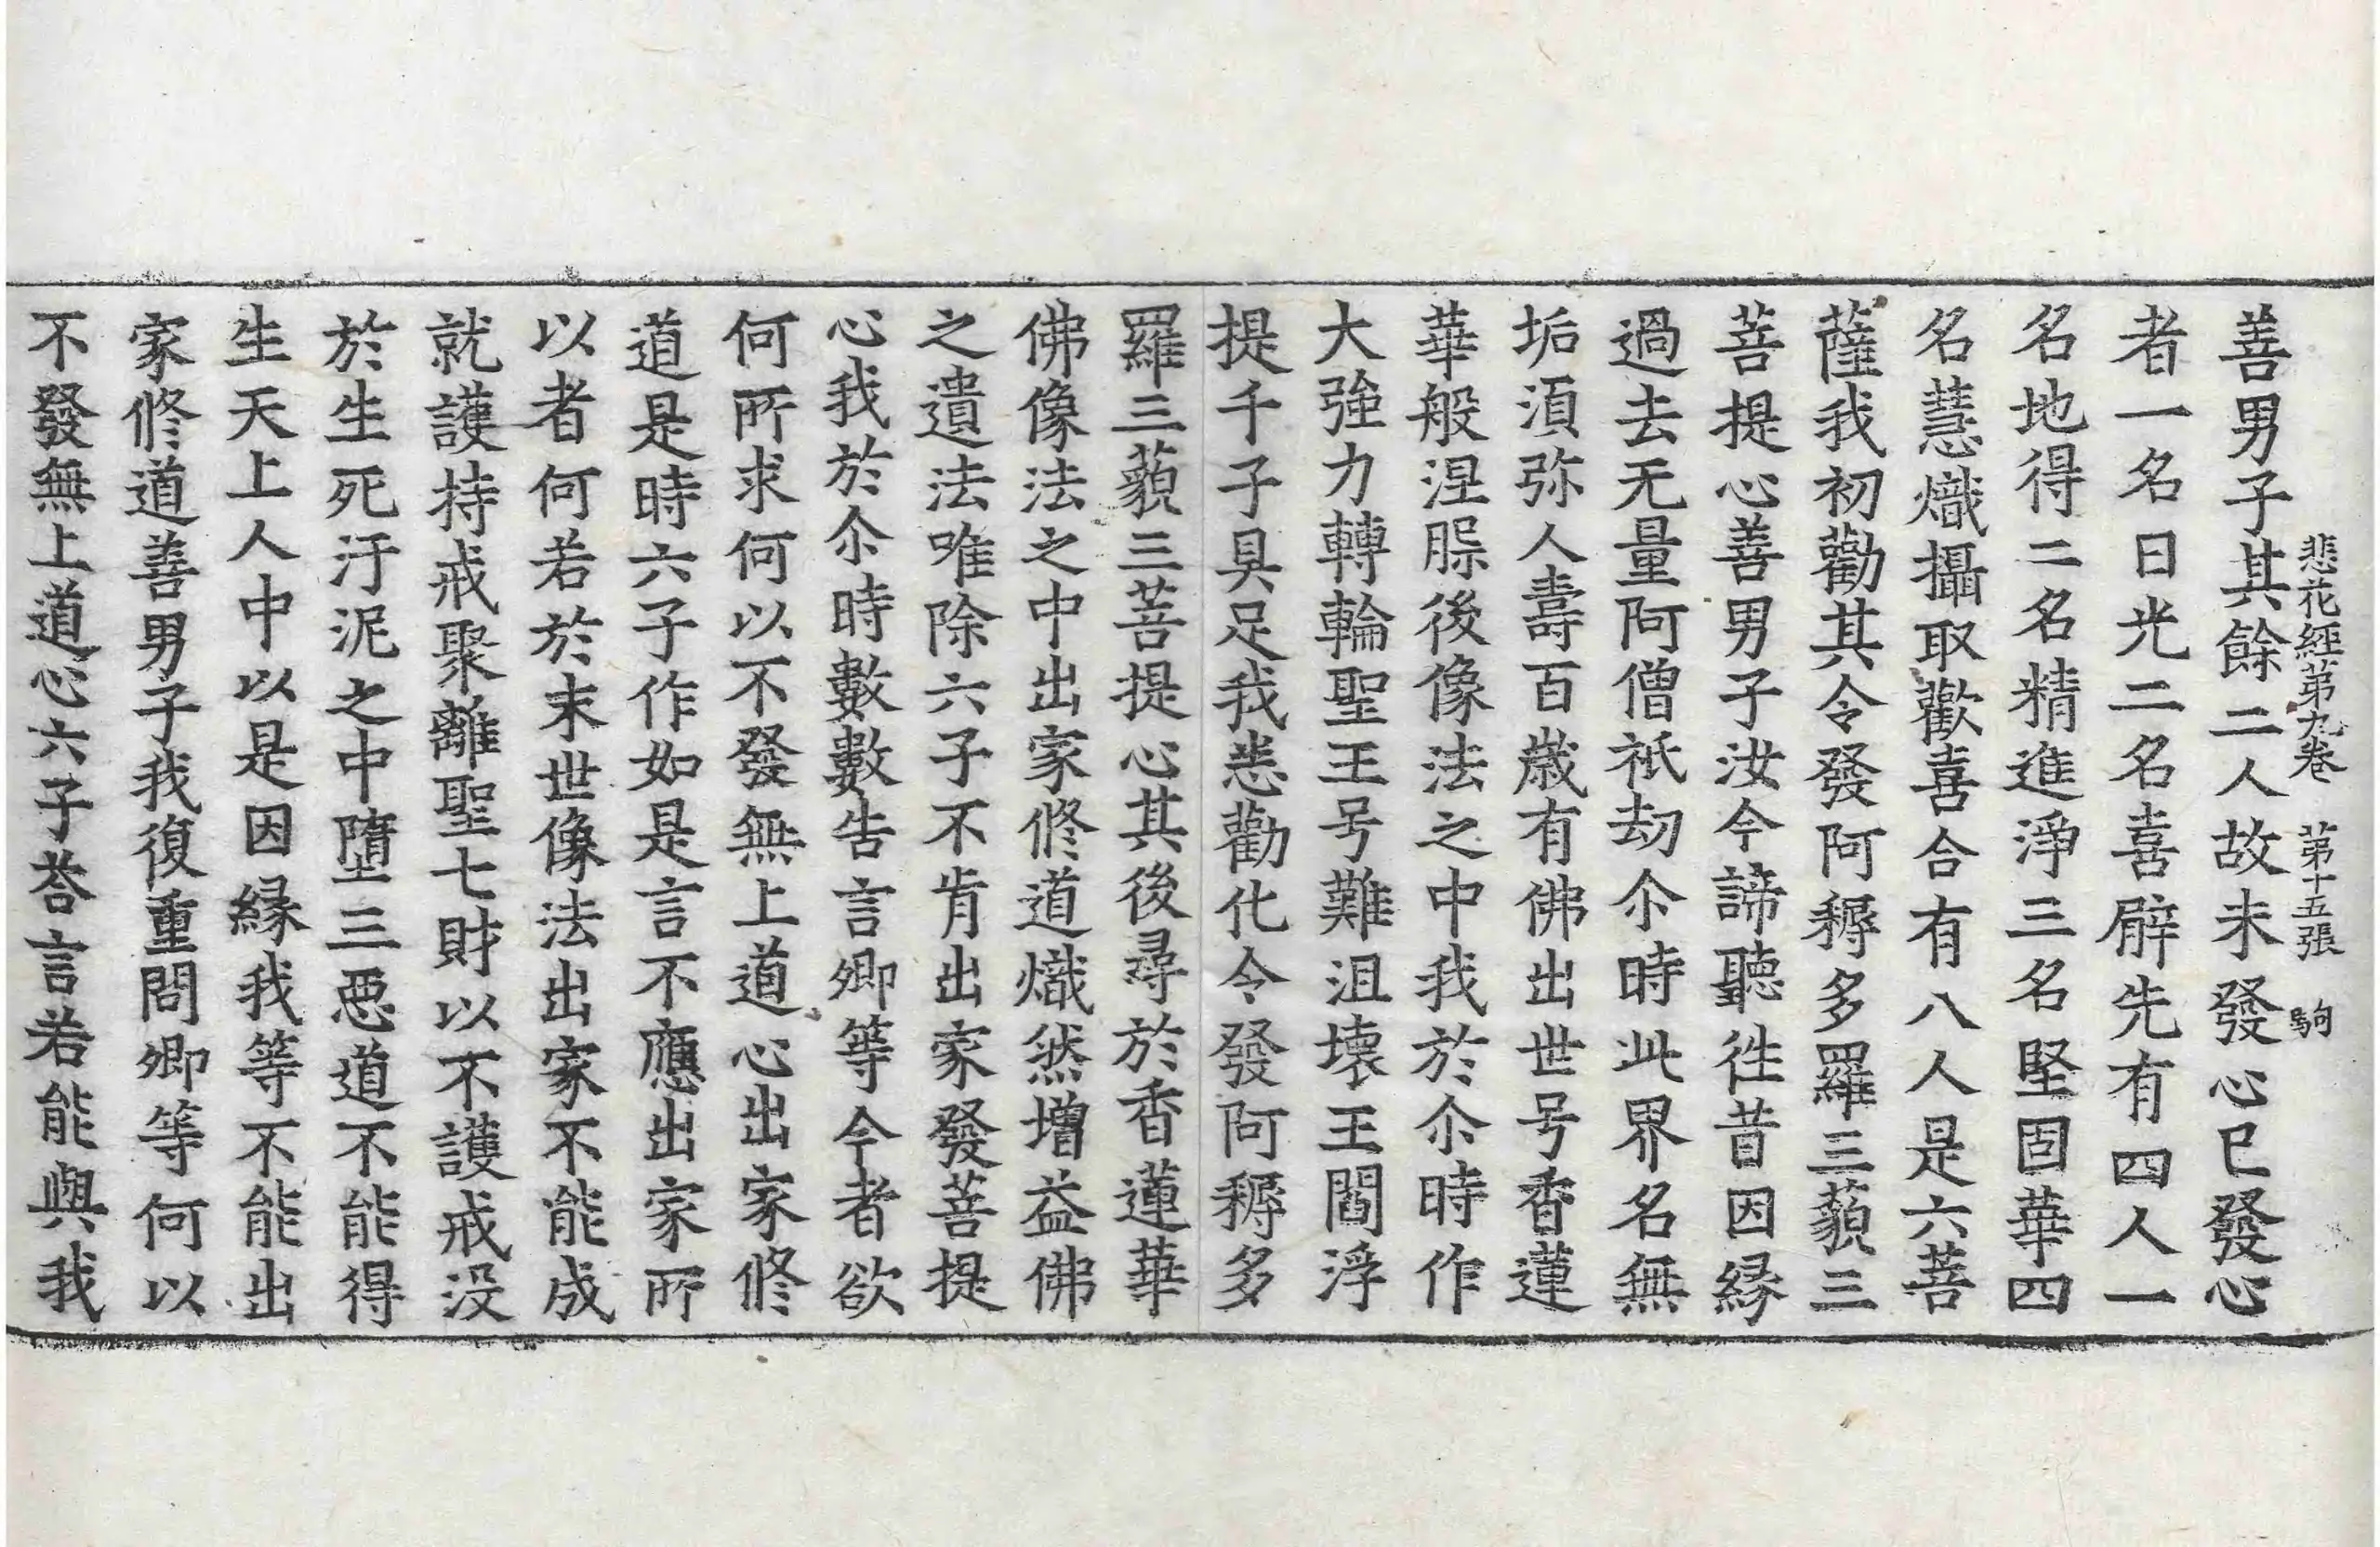 悲花經第九卷 第十五張 駒
善男子其餘二人故未發心已發心
者一名日光二名喜辟先有四人一
名地得二名精進淨三名堅固華四
名慧熾攝取歡喜合有八人是六菩
薩我初勸其令發阿耨多羅三藐三
菩提心善男子汝今諦聽徃昔因緣
過去无量阿僧祇劫尒時此界名無
垢湏弥人壽百歲有佛出世号香蓮
華般涅槃後像法之中我於尒時作
大強力轉輪聖王号難沮壞王閻浮
提千子具足我悉勸化令發阿耨多
羅三藐三菩提心其後尋於香蓮華
佛像法之中出家修道熾然增益佛
之遺法唯除六子不肯出家發菩提
心我於尒時數數告言卿等今者欲
何所求何以不發無上道心出家修
道是時六子作如是言不應出家所
以者何若於末世像法出家不能成
就護持戒聚離聖七財以不護戒没
於生死汙泥之中墮三惡道不能得
生天上人中以是因緣我等不能出
家修道善男子我復重問卿等何以
不發無上道心六子荅言若能與我